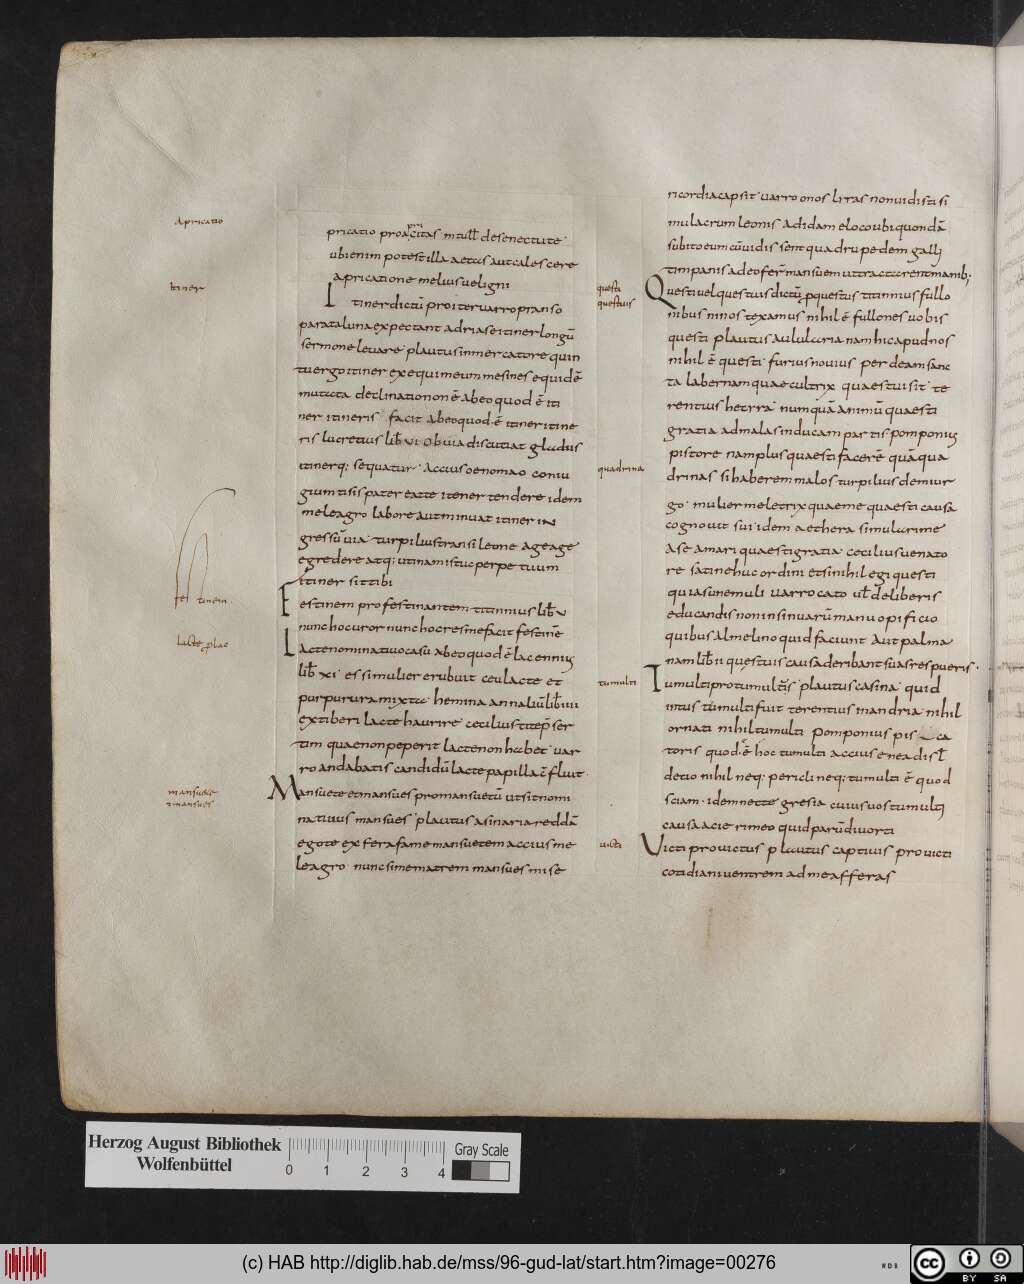 apricatio
pricatio proapricitas m tull de senectute
ubi enim potest illa aetas aut calescere
apricatione melius vel igni
itiner
Itiner dictū pro iter varro pranso
parata luna expectant adria se itiner longū
sermone levare plautus in mercatore quin
tu ergo itiner exequi meum me sines equidē
mutata declinatio non ē ab eo quod ē iti
ner itineris facit ab eo quod ē itiner itine
ris lucretius lib vi obvia discutiat gladius
itinerq; sequatur accius oenomao coniu
gium tisis pater eatte itener tendere idem
meleagro labore aut minuat itiner in
gressū via turpilius transileone age age
egredere atq; utinam istuc perpetuum
itiner sit tibi
festinem
Festinem pro festinantem titinnius libr v
nunc hoc uror nunc hoc res me facit festinē
lacte p lac
Lacte nominativo casu ab eo quod ē lac ennius
lib xi es si mulier erubuit ceu lacte et
purpura mixta hemina annaliū lib iiii
ex tiberi lacte haurire cecilius titep ser
tim quae non peperit lacte non habet var
ro andabatis candidū lacte papilla c̄ fluit
mansuete
r mansues
Mansuete et mansues pro mansuetū ut sit nomi
nativus mansues plautus asinaria reddā
ego te ex fera fame mansuetem accius me
leagro nunc si me matrem mansues mise
ricordia capsit varro onos liras non vidisti si
mulacrum leonis ad idam eo loco ubi quondā
subito eum cū vidissent quadrupedem galli
timpanis adeo ferm mansuem ut tractarent manib;
questi
questuis
Questi vel questuis dictū p questus titinnius fullo
nibus ni nos texamus nihil ē fullones vobis
questi plautus aulularia nam hic apud nos
nihil ē questi furius novius per deam sanc
ta labernam quae cultrix quaestui sit te
rentius hecyra numquā animū quaesti
gratia ad malas inducam partis pomponius
quadrina
pistore nam plus quaesti facerē quā qua
drinas si haberem malos turpilius demiur
go mulier meletrix quae me quaesti causā
cognovit sui idem aethera simul cu rime
a se amari quaesti gratia cecilius venato
re satine huc ordini etsi nihil egi questi
quia sunemuli varro cato vel de liberis
educandis non in si navarū manu opificio
quibus almelino quid faciunt aut palma
nam lib ii questuis causa deribant suas res pueris
tumulti
Tumulti pro tumultus plautus casina quid
intus tumulti fuit terentius in andria nihil
ornati nihil tumulti pomponius pis ca
toris quod ē hoc tumulti accius eneadis l
decio nihil neq; pericli neq; tumulti ē quod
sciam idem nectegresia cuius vos tumulti
causa acierim eo quid parū divorti
victi
Victi pro victus plautus captivis pro victi
cotidiani ventrem ad me afferas
Herzog August Bibliothek
Wolfenbüttel
0 1 2 3 4
Gray Scale
(c) HAB http://diglib.hab.de/mss/96-gud-lat/start.htm?image=00276
WDB
cc BY SA